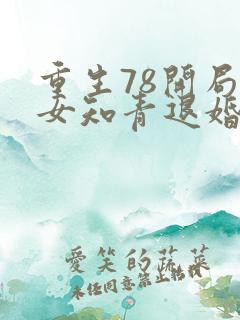 重生78開局
女知青退婚
愛笑的蔬菜
未經同意禁止轉載